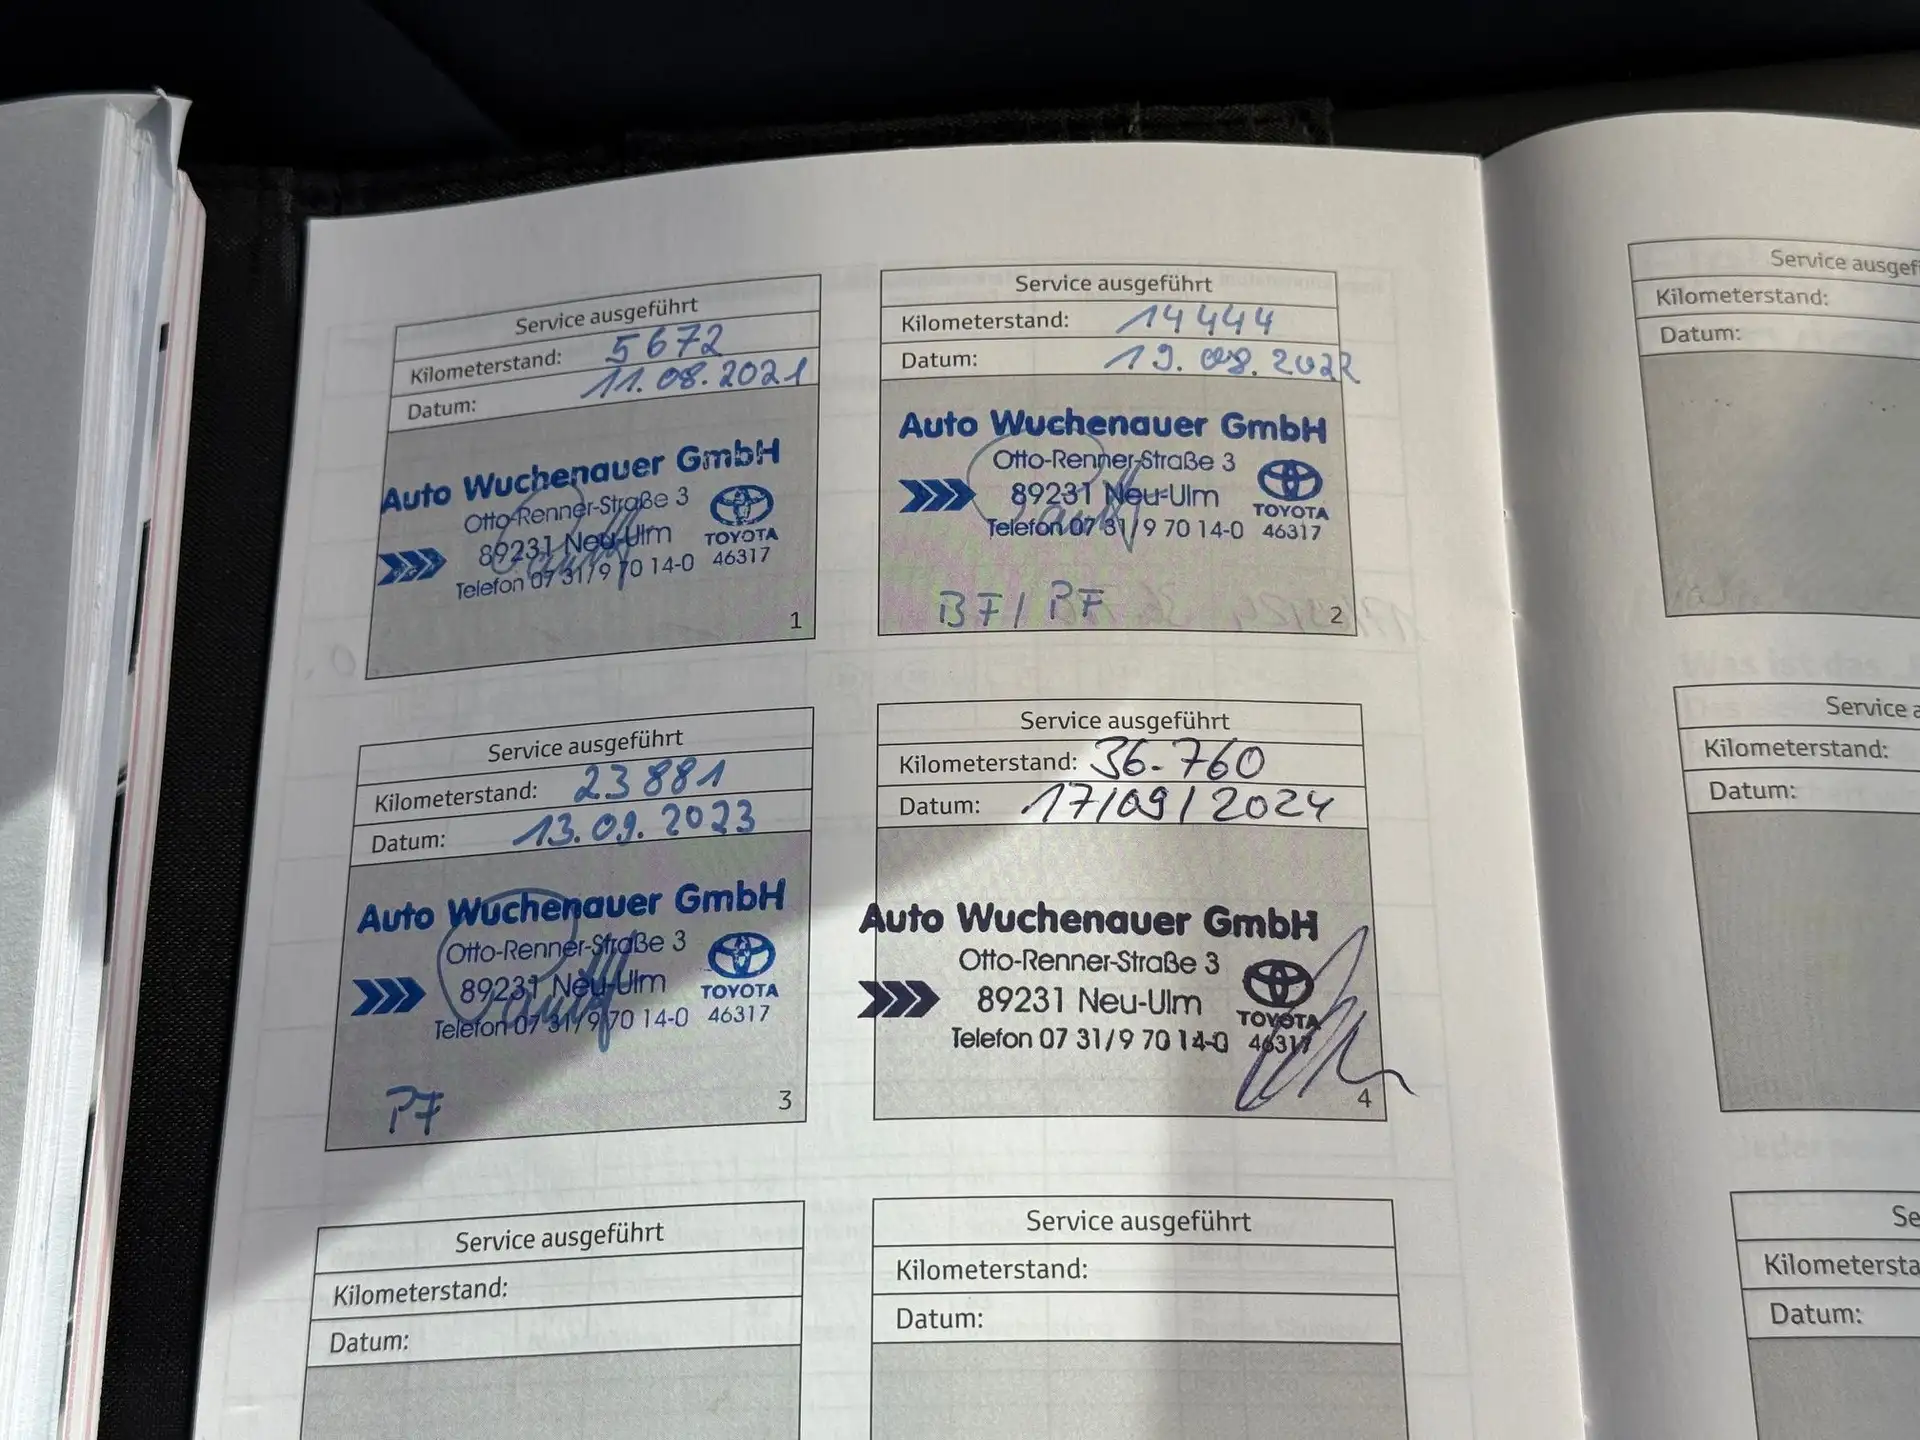 Service ausgeführt
Kilometerstand: 5672
Datum: 11.08.2021
Auto Wuchenauer GmbH
Otto-Renner-Straße 3
89231 Neu-Ulm
Telefon 07 31/9 70 14-0
TOYOTA
46317
1
Service ausgeführt
Kilometerstand: 14444
Datum: 19.08.2022
Auto Wuchenauer GmbH
Otto-Renner-Straße 3
89231 Neu-Ulm
Telefon 07 31/9 70 14-0
TOYOTA
46317
BF/ PF
2
Service ausgeführt
Kilometerstand: 23881
Datum: 13.09.2023
Auto Wuchenauer GmbH
Otto-Renner-Straße 3
89231 Neu-Ulm
Telefon 07 31/9 70 14-0
TOYOTA
46317
PF
3
Service ausgeführt
Kilometerstand: 36.760
Datum: 17/09/2024
Auto Wuchenauer GmbH
Otto-Renner-Straße 3
89231 Neu-Ulm
Telefon 07 31/9 70 14-0
TOYOTA
46317
4
Service ausgeführt
Kilometerstand:
Datum:
Service ausgeführt
Kilometerstand:
Datum:
Service ausgef
Kilometerstand:
Datum:
Service a
Kilometerstand:
Datum:
Se
Kilometersta
Datum: